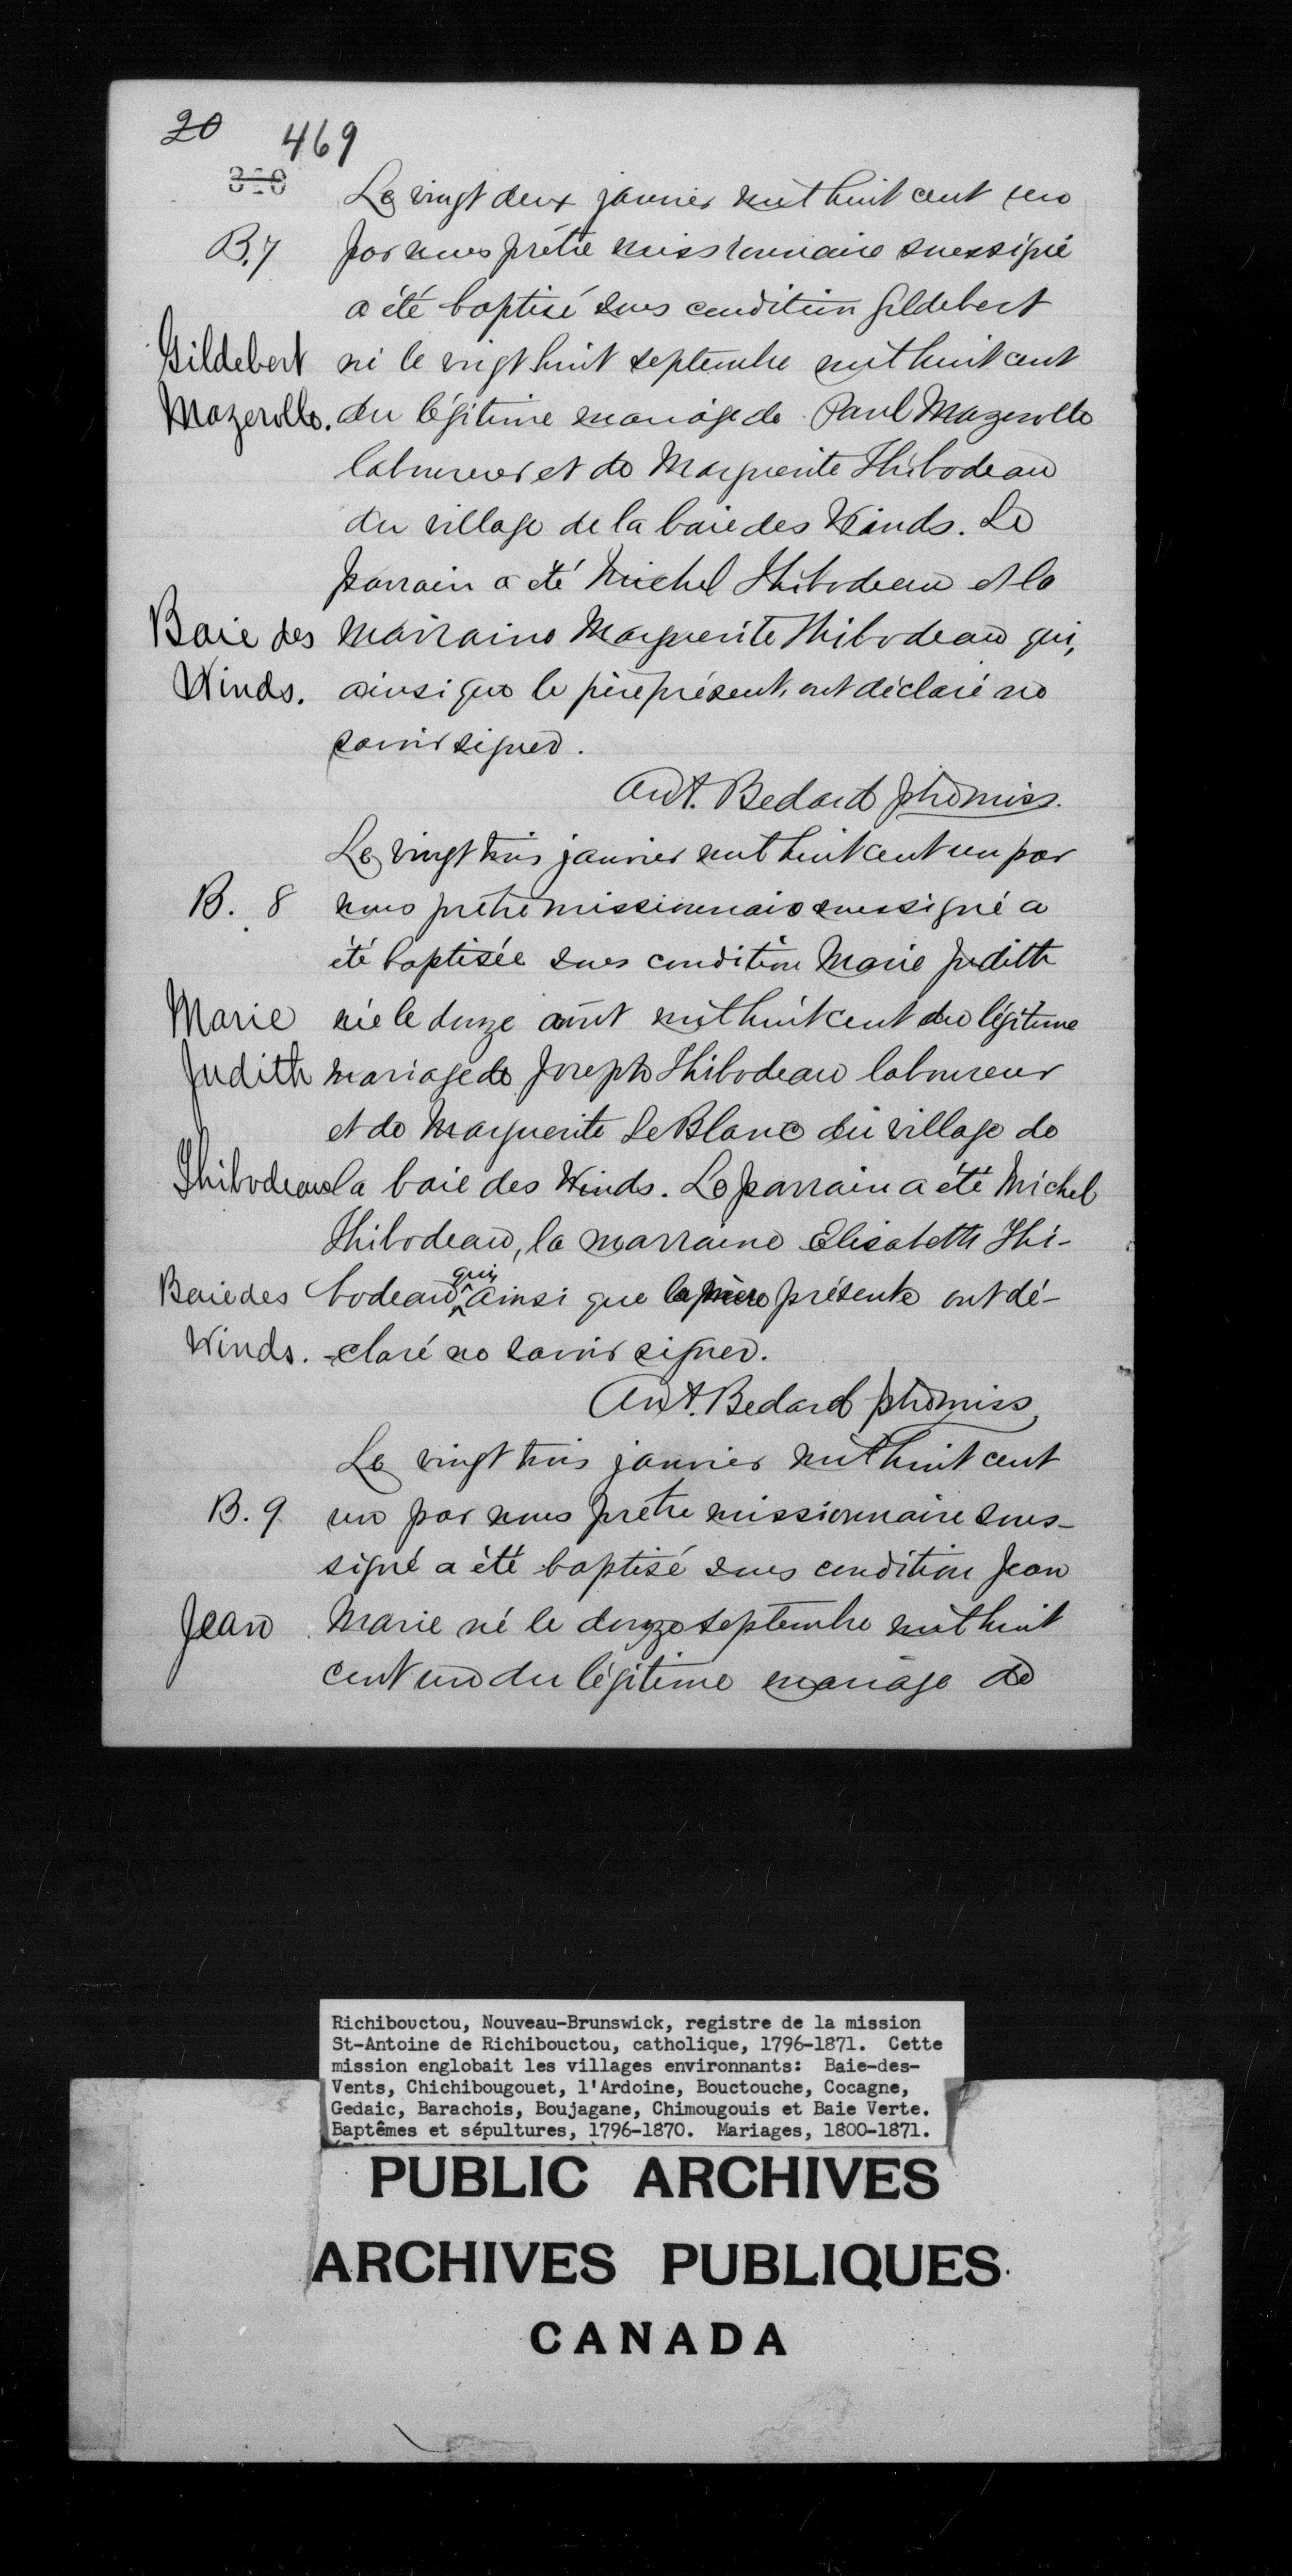 20
469
320
Le vingt deux janvier mil huit cent un
B. 7 par nous prêtre missionnaire soussigné
a été baptisé sous condition Gildebert
Gildebert né le vingt huit septembre mil huit cent
Mazerolle. du légitime mariage de Paul Mazerolle
laboureur et de Marguerite Thibodeau
du village de la baie des Winds. Le
parrain a été Michel Thibodeau et la
Baie des marraine Marguerite Thibodeau qui,
Winds. ainsi que le père présent, ont déclaré ne
savoir signer.
Ant. Bedard ptre miss.
Le vingt trois janvier mil huit cent un par
B. 8 nous prêtre missionnaire soussigné a
été baptisée sous condition Marie Judith
Marie née le douze août mil huit cent du légitime
Judith mariage de Joseph Thibodeau laboureur
et de Marguerite LeBlanc du village de
Thibodeau la baie des Winds. Le parrain a été Michel
Thibodeau, la marraine Elisabeth Thi-
qui
Baie des bodeau ainsi que la mère présente ont dé-
Winds. -claré ne savoir signer.
Ant. Bedard ptre miss
Le vingt trois janvier mil huit cent
B. 9 un par nous prêtre missionnaire sous-
signé a été baptisé sous condition Jean
Jean Marie né le douze septembre mil huit
cent un du légitime mariage de
Richibouctou, Nouveau-Brunswick, registre de la mission
St-Antoine de Richibouctou, catholique, 1796-1871. Cette
mission englobait les villages environnants: Baie-des-
Vents, Chichibougouet, l'Ardoine, Bouctouche, Cocagne,
Gedaic, Barachois, Boujagane, Chimougouis et Baie Verte.
Baptêmes et sépultures, 1796-1870. Mariages, 1800-1871.
PUBLIC ARCHIVES
ARCHIVES PUBLIQUES
CANADA